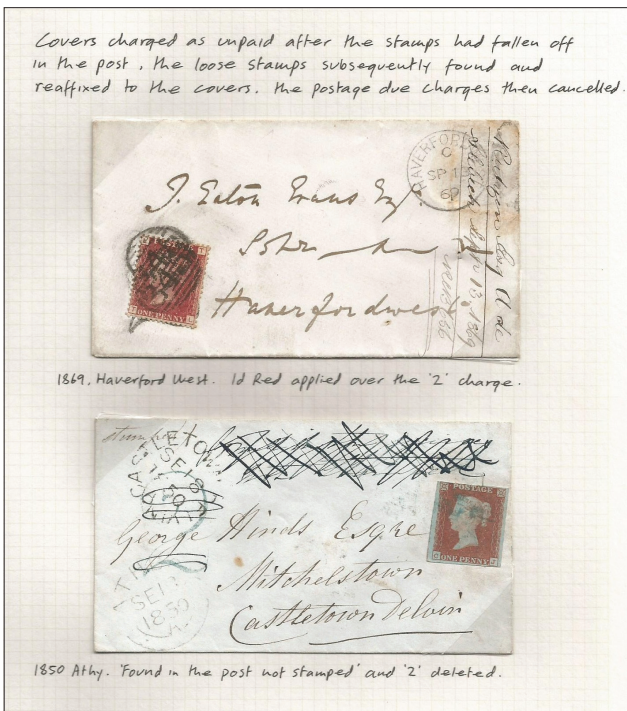 Covers charged as unpaid after the stamps had fallen off
in the post, the loose stamps subsequently found and
reaffixed to the covers. The postage due charges then cancelled.
HAVERFORD
C
SP 1
69
J. Eaton Evans Esq
Haverfordwest
ONE PENNY
1869. Haverford West. 1d Red applied over the '2' charge.
CASTLETOWN DELVIN
SE 18
George Hinds Esqre
Mitchelstown
Castletown Delvin
POSTAGE
ONE PENNY
ATHY
SE 1
1850
1850 Athy. 'Found in the post not stamped' and '2' deleted.